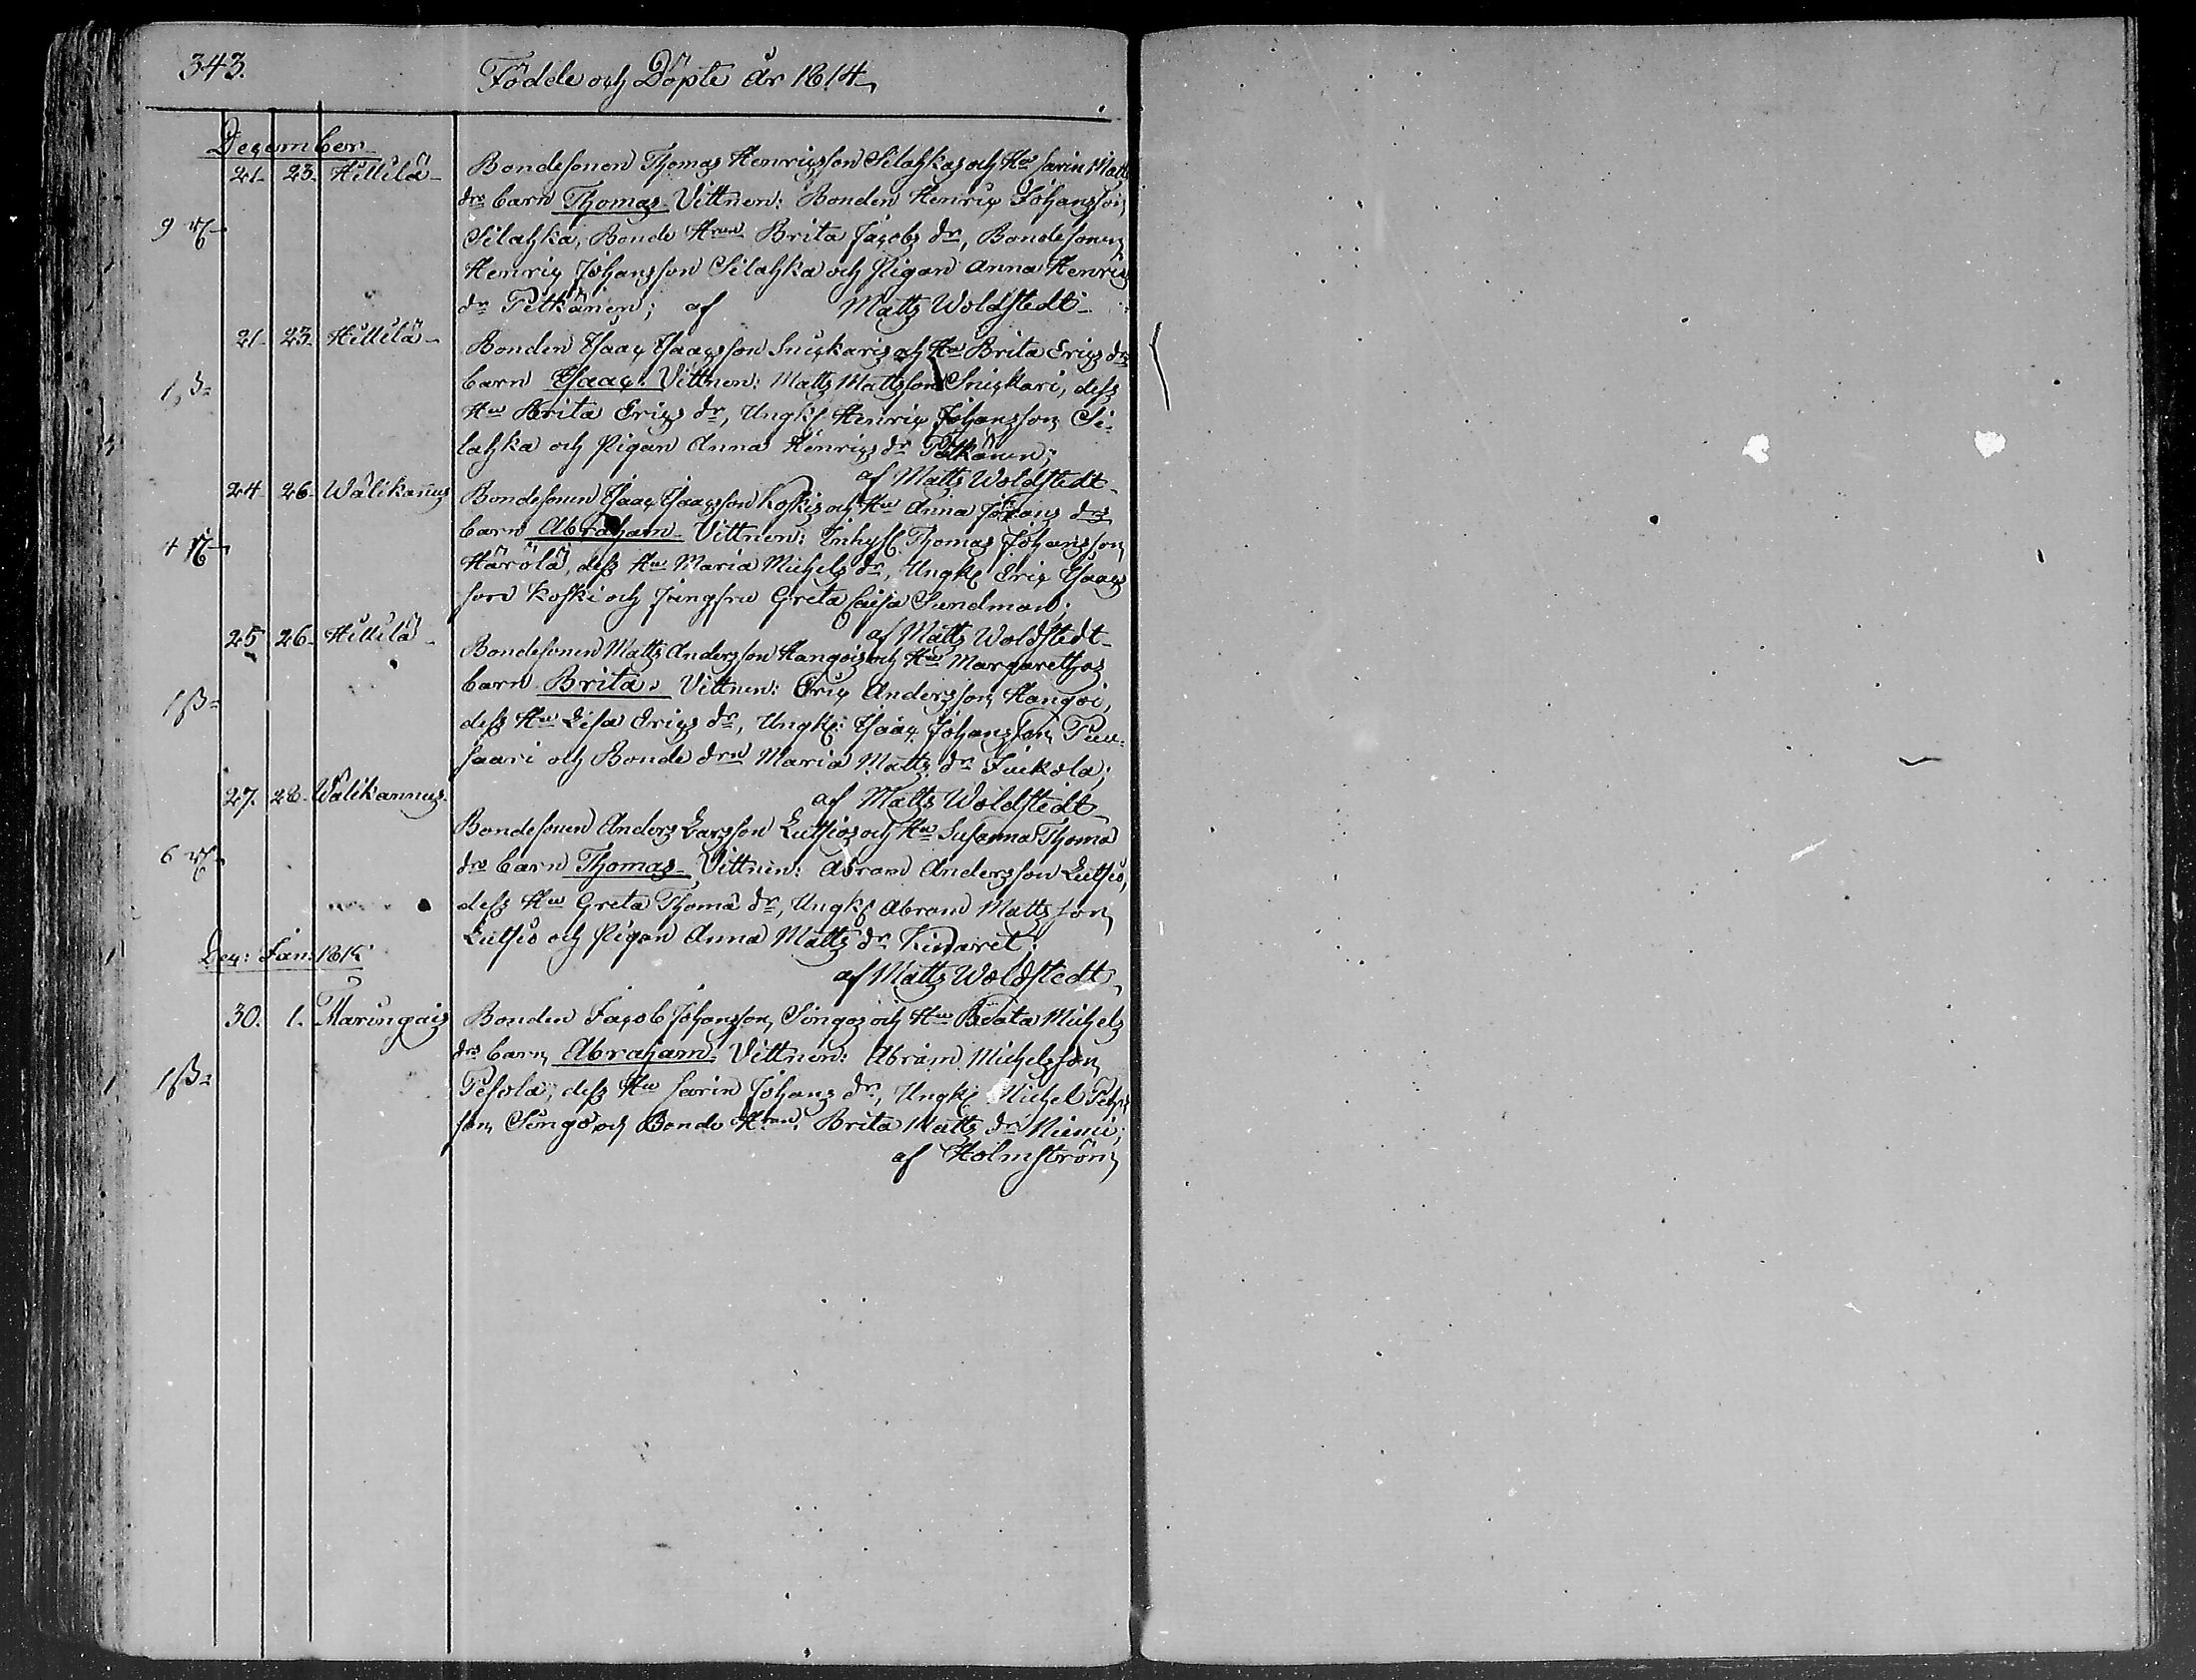 343.
Födde och Döpte år 1814,
December
21. 23. Hillilä Bondesonen Thomas Henricsson Silahkas och Hu Carin Matts
drs barn Thomas. Vittnen: Bonden Henric Johansson
9 Silahka, Bonde Hrun Brita Jacobs dr, Bondesonen
Henric Johansson Silahka och Pigan Anna Henrics
dr Pitkänen; af Matts Woldstedt
21. 23. Hillilä Bonden Isaac Isaacsson Snickaris och Hu Brita Erics drs
barn Isaac. Vittnen: Matts Mattsson Snickari, dess
Hu Brita Erics dr, Ungk: Henric Johansson Si-
lahka och Pigan Anna Henrics dr Pitkänen;
af Matts Woldstedt
24 26 Wälikannus Bondesonen Isaac Isaacsson Koskis och Hu Anna Johans drs
barn Abraham. Vittnen: Inhys: Thomas Johansson
4 Härölä, dess Hu Maria Michels dr, Ungk: Eric Isaacs
son Koski och Jungfru Greta Caisa Sundman;
af Matts Woldstedt
25 26 Hillilä Bondesonen Matts Andersson Kangois och Hu Margarethas
barn Brita. Vittnen: Eric Andersson Kangoi,
dess Hu Lisa Erics dr, Ungk: Isaac Johansson Puu-
saari och Bonde drn Maria Matts dr Juckola;
af Matts Woldstedt
27. 28. Wälikannus Bondesonen Anders Larsson Luthios och Hu Susanna Thomæ
drs barn Thomas. Vittnen: Abram Andersson Luthio,
6 dess Hu Greta Thomæ dr, Ungk: Abram Mattsson
Luthio och Pigan Anna Matts dr Kinaret;
af Matts Woldstedt
Dec: Jan: 1815
30. 1. Maringais Bonden Jacob Johansson Singos och Hu Beata Michels
drs barn Abraham. Vittnen: Abram Michelsson
Pesola, dess Hu Carin Johans dr, Ungk: Michel
son Singo och Bonde Hrun Brita Matts dr Niemi;
af Holmström